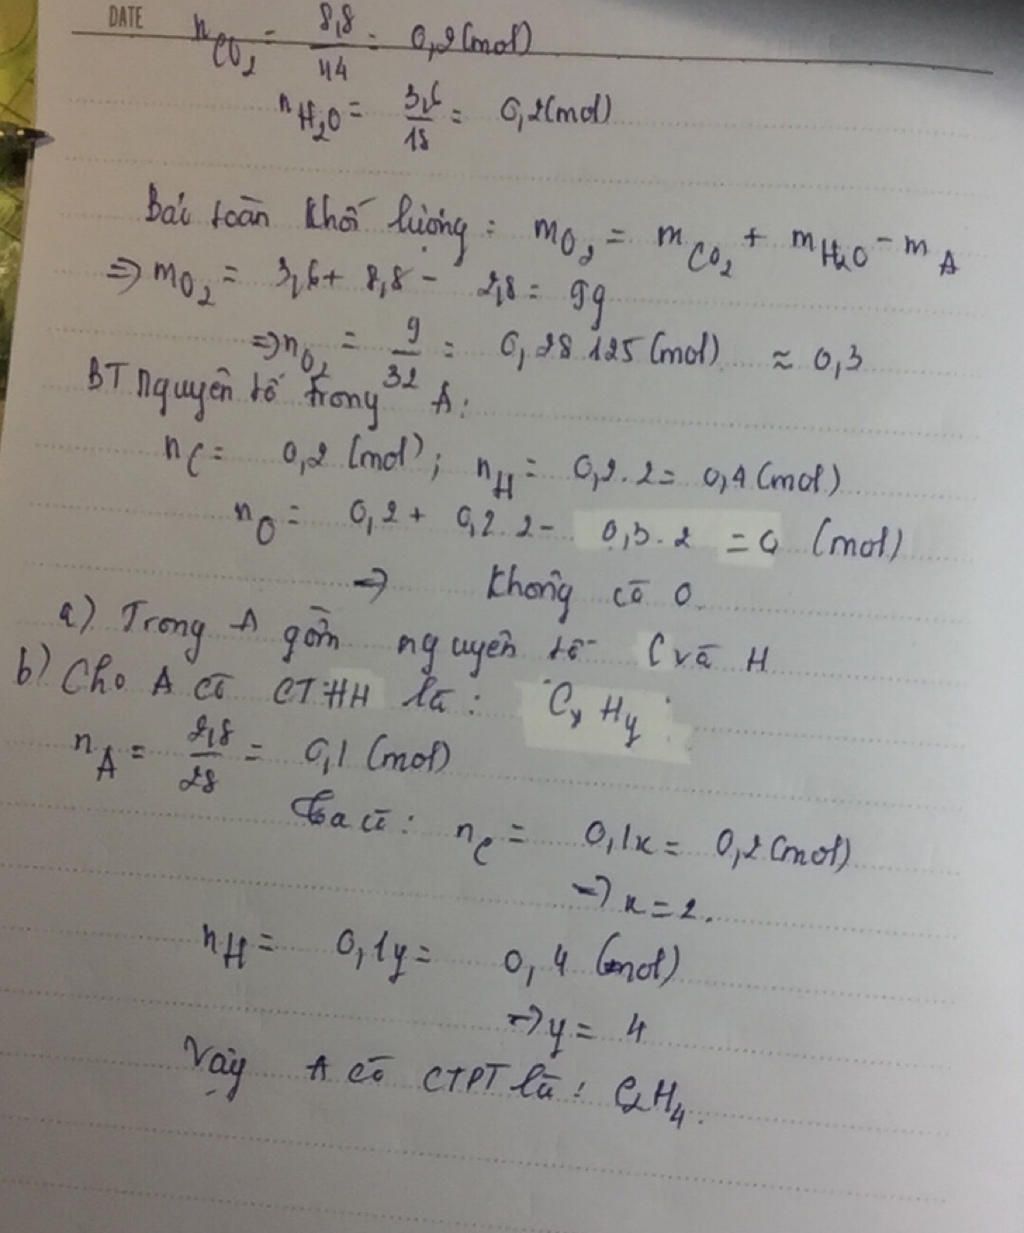 DATE
nCO₂ = 8,8/44 = 0,2 (mol)
nH₂O = 3,6/18 = 0,2 (mol)
Bải toàn khối lượng: mO₂ = mCO₂ + mH₂O - mA
=> mO₂ = 3,6 + 8,8 - 2,8 = 9g
=> nO₂ = 9/32 = 0,28125 (mol) ≈ 0,3
BT nguyên tố trong A:
nC = 0,2 (mol); nH = 0,2.2 = 0,4 (mol)
nO = 0,2 + 0,2.2 - 0,3.2 = 0 (mol)
=> không có O.
a) Trong A gồm nguyên tố C và H
b) Cho A có CTHH là: CxHy
nA = 2,8/28 = 0,1 (mol)
Ta có: nC = 0,1x = 0,2 (mol)
=> x = 2.
nH = 0,1y = 0,4 (mol)
=> y = 4
Vậy A có CTPT là: C₂H₄.